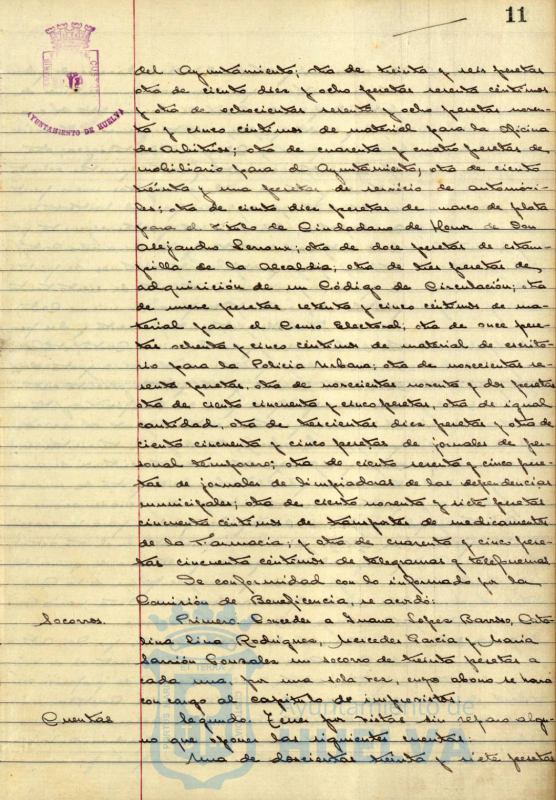 11
AYUNTAMIENTO DE HUELVA
del Ayuntamiento; otra de treinta y seis pesetas
otra de ciento diez y ocho pesetas sesenta céntimos
y otra de ochocientas sesenta y ocho pesetas noven-
ta y cinco céntimos de material para la Oficina
de Arbitrios; otra de cuarenta y cuatro pesetas de
mobiliario para el Ayuntamiento; otra de ciento
treinta y una pesetas de servicio de automóvi-
les; otra de ciento diez pesetas de marco de plata
para el Título de Ciudadano de Honor de Don
Alejandro Lerroux; otra de doce pesetas de estam-
pilla de la Alcaldia; otra de tres pesetas de
adquisición de un Código de Circulación; otra
de nueve pesetas setenta y cinco céntimos de ma-
terial para el Censo Electoral; otra de once pese-
tas ochenta y cinco céntimos de material de escrito-
rio para la Policia Urbana; otra de novecientas se-
senta pesetas, otra de novecientas noventa y dos pesetas
otra de ciento cincuenta y cinco pesetas, otra de igual
cantidad, otra de trescientas diez pesetas y otra de
ciento cincuenta y cinco pesetas de jornales de per-
sonal temporero; otra de ciento sesenta y cinco pese-
tas de jornales de limpiadoras de las dependencias
municipales; otra de ciento noventa y siete pesetas
cincuenta céntimos de transportes de medicamentos
de la Farmacia; y otra de cuarenta y cinco pese-
tas cincuenta céntimos de telegramas y telefonemas
De conformidad con lo informado por la
Comisión de Beneficencia, se acordó:
Socorros. Primero: Conceder a Juana López Barroso, Cata-
lina Lina Rodriguez, Mercedes Garcia y Maria
Sarrión Gonzalez un socorro de treinta pesetas a
cada una, por una sola vez, cuyo abono se hará
con cargo al capitulo de imprevistos.
Cuentas Segundo: Tener por vistas sin reparo algu-
no que oponer las siguientes cuentas:
Una de doscientas treinta y siete pesetas
Ayuntamiento de
HUELVA